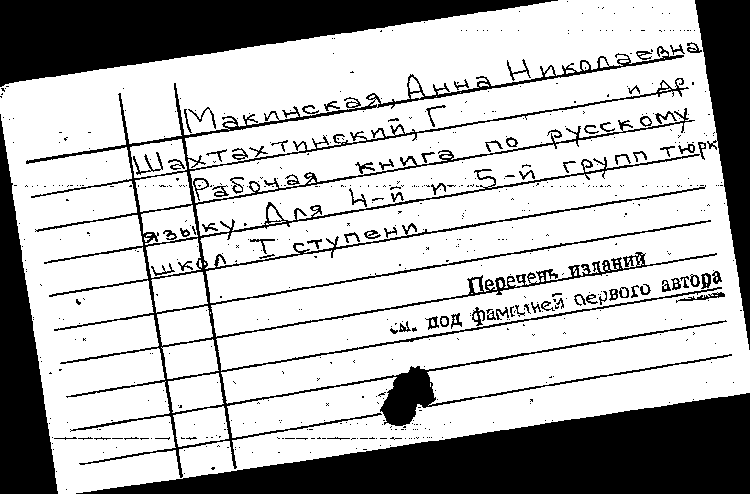 Макинская, Анна Николаевна
и др.
Шахтахтинский, Г
Рабочая книга по русскому
языку. Для 4-й и 5-й групп тюрк
школ I ступени.
Перечень изданий
см. под фамилией первого автора